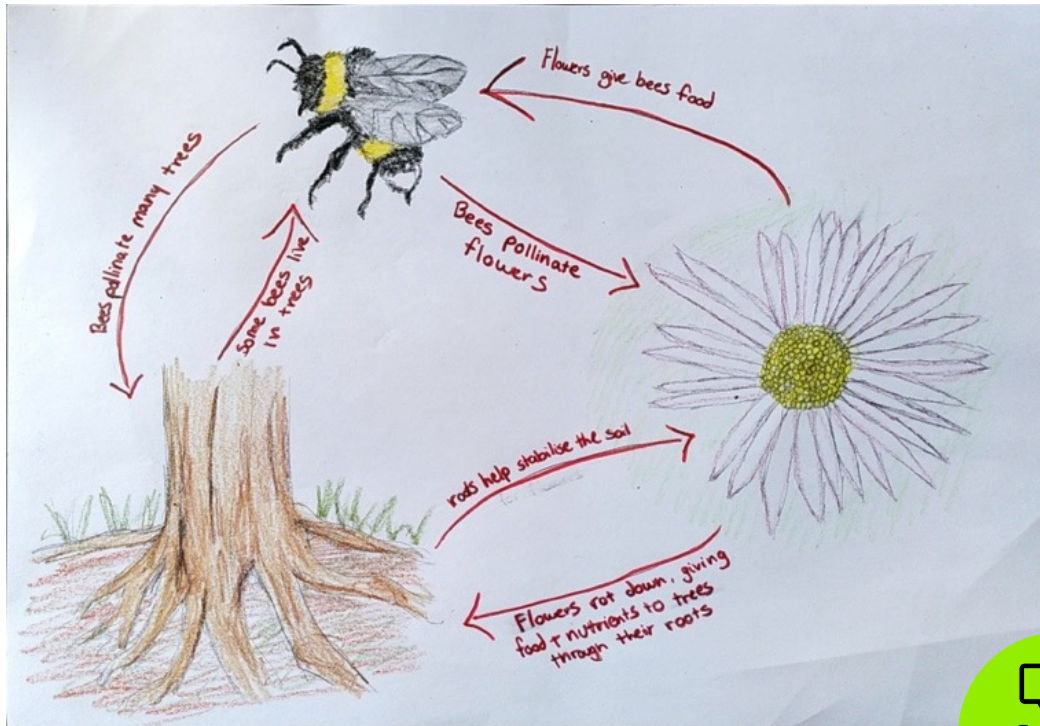 Flowers give bees food
Bees pollinate many trees
Some bees live
in trees
Bees pollinate
flowers
roots help stabilise the soil
Flowers rot down, giving
food + nutrients to trees
through their roots